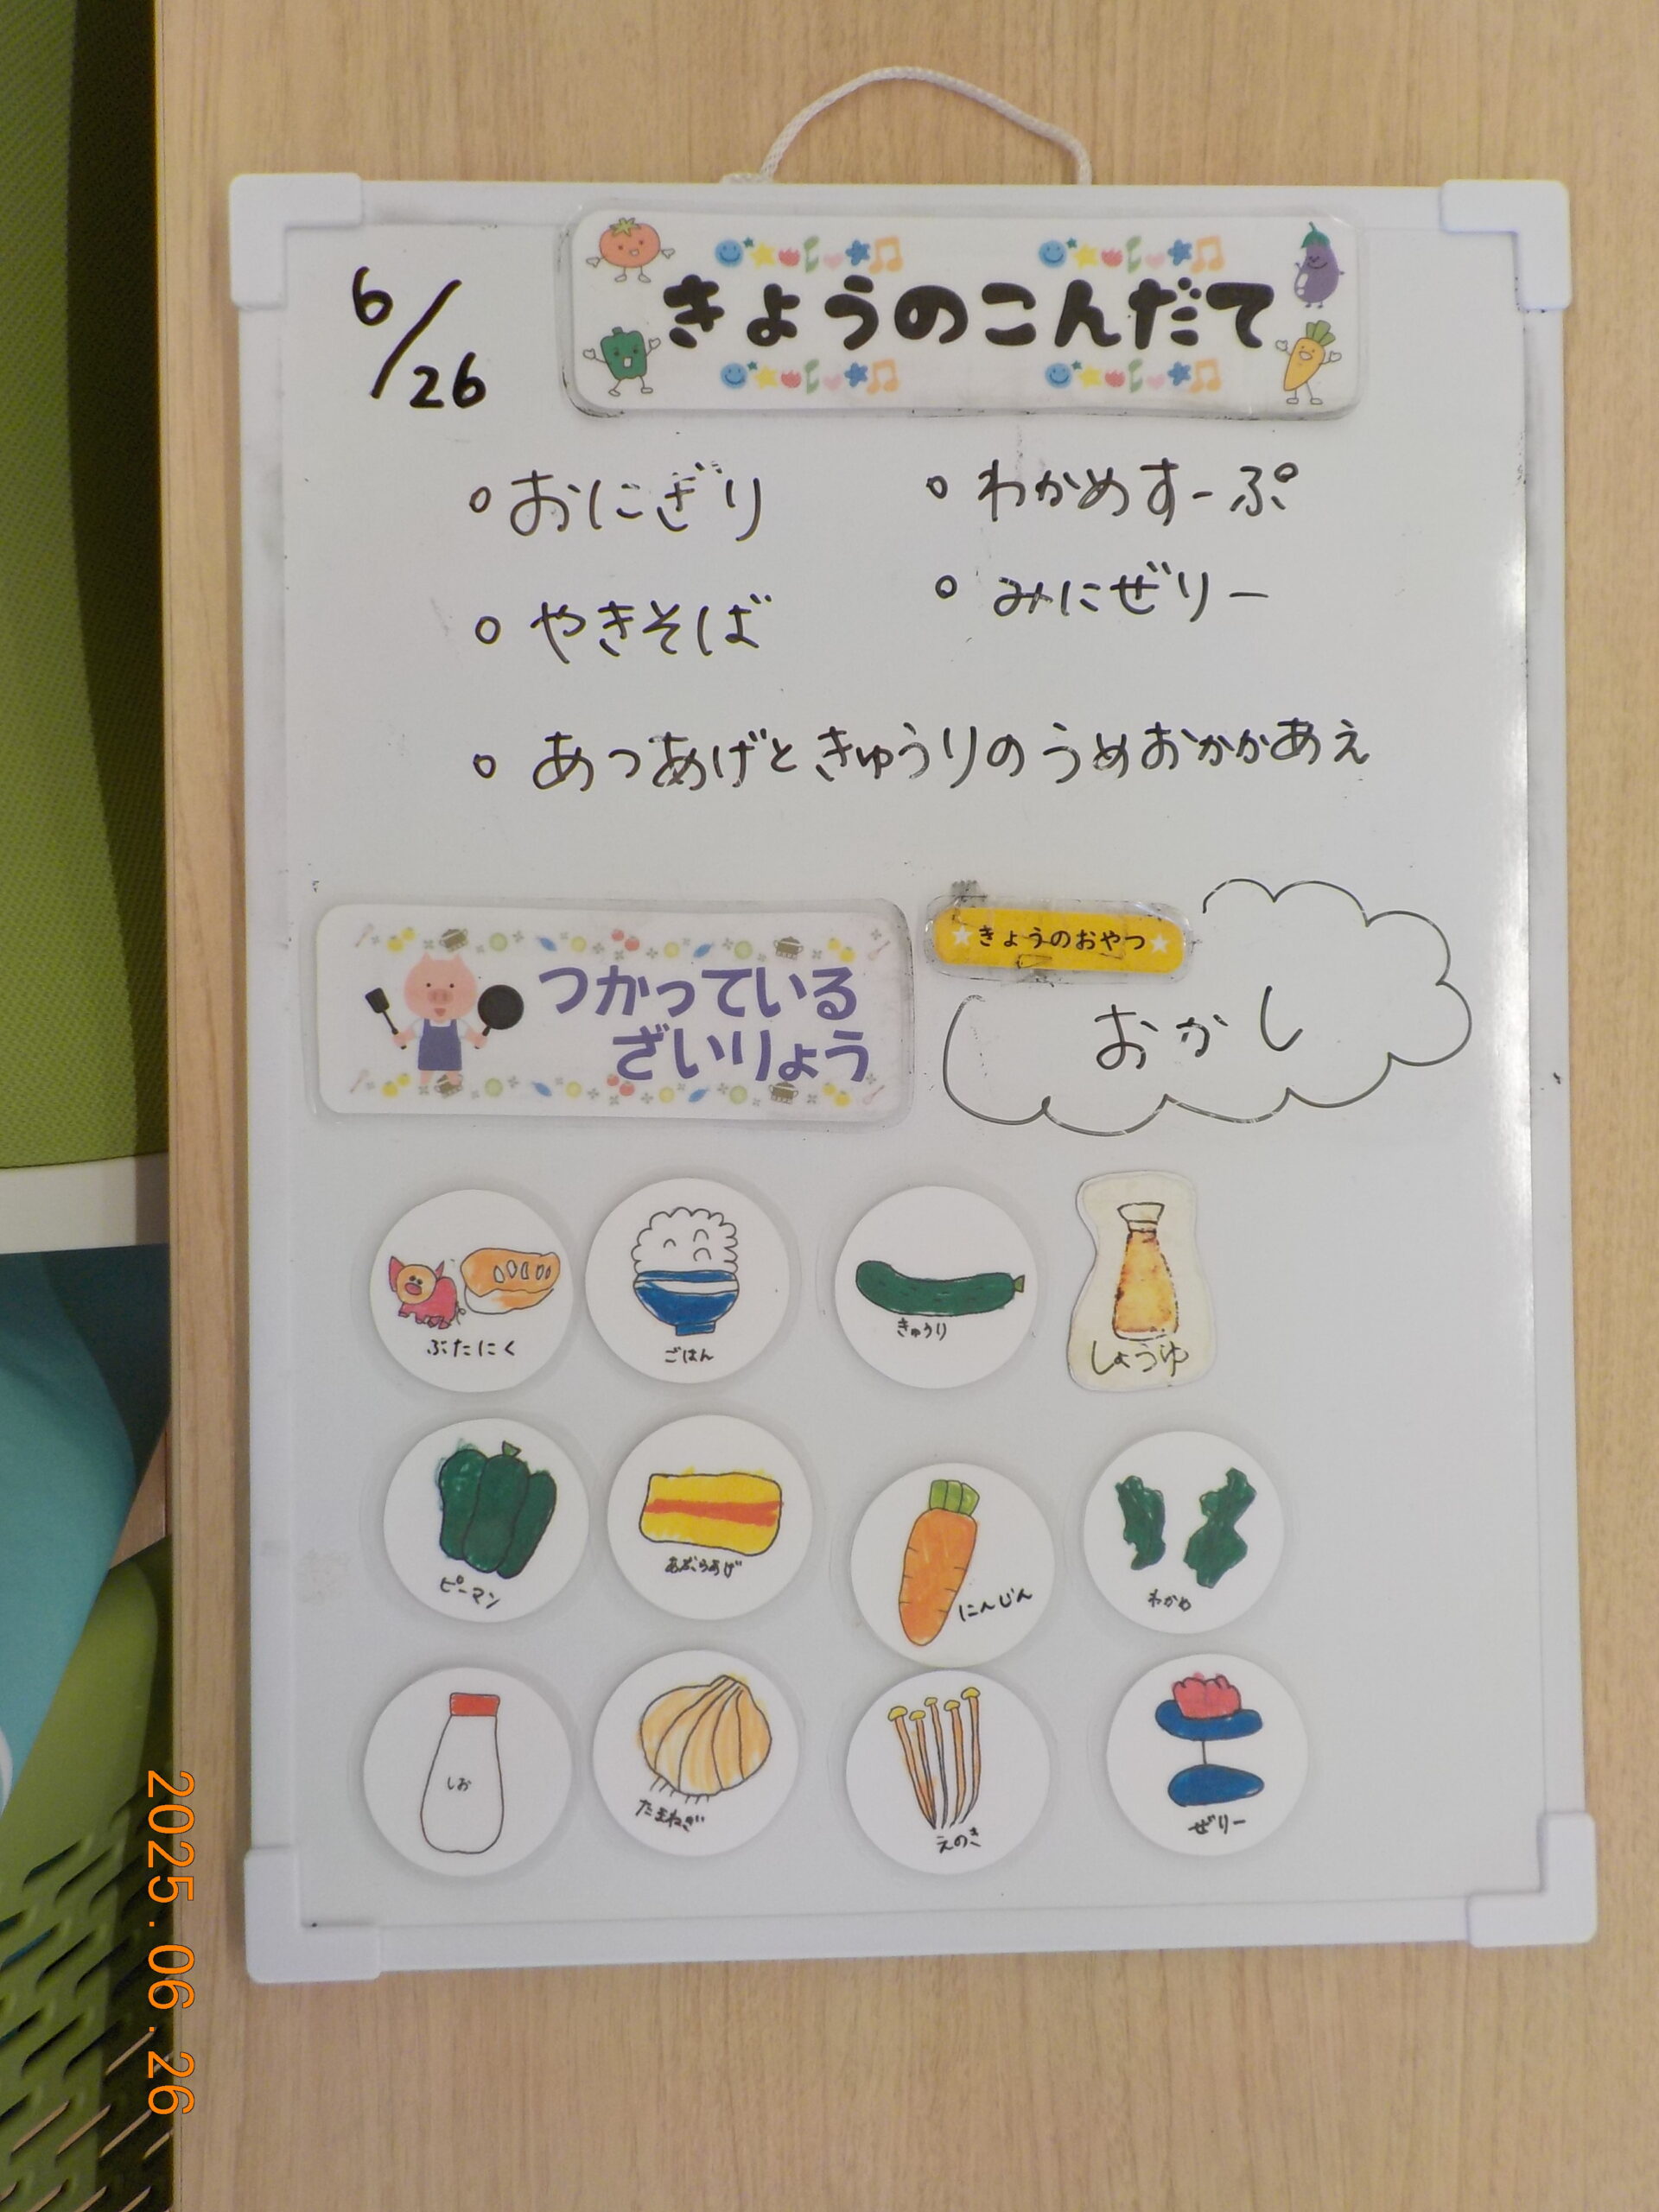 6/26
きょうのこんだて
おにぎり
わかめすーぷ
やきそば
みにぜりー
あつあげときゅうりのうめおかかあえ
つかっている
ざいりょう
きょうのおやつ
おかし
ぶたにく
ごはん
きゅうり
しょうゆ
ピーマン
あぶらあげ
にんじん
わかめ
しお
たまねぎ
えのき
ぜりー
2025.06.26